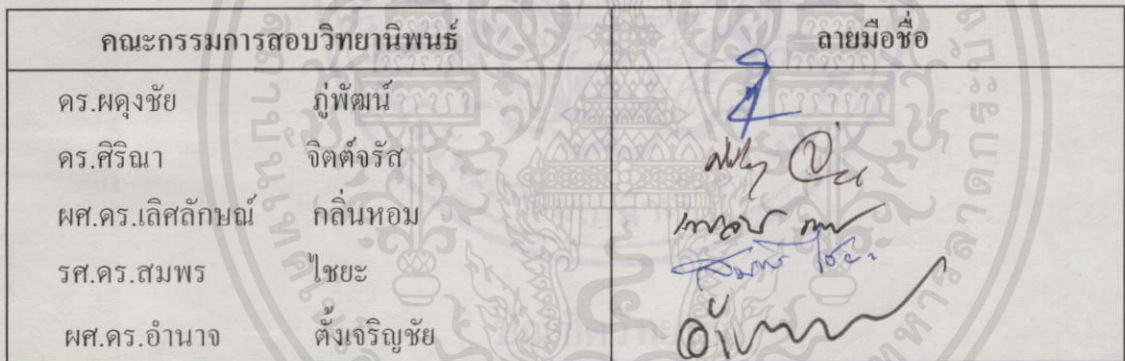 คณะกรรมการสอบวิทยานิพนธ์ ลายมือชื่อ
ดร.ผดุงชัย ภู่พัฒน์
ดร.ศิริณา จิตต์จรัส
ผศ.ดร.เลิศลักษณ์ กลิ่นหอม
รศ.ดร.สมพร ไชยะ สมพร ไชยะ
ผศ.ดร.อำนาจ ตั้งเจริญชัย